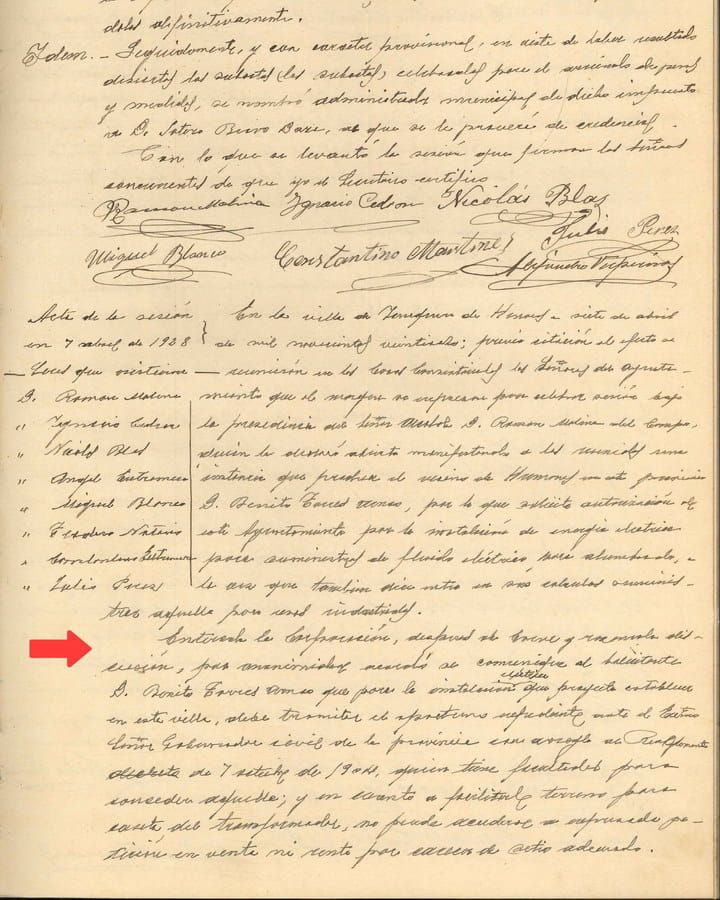 dolos definitivamente.
Idem. – Seguidamente, y con caracter provisional, en vista de haber resultado
desiertas las subastas (las subastas) celebradas para el arriendo de pesas
y medidas, se nombró administrador municipal de dicho impuesto
a D. Sotero Bravo, al que se le proveerá de credencial.
Con lo que se levantó la sesión que firman los señores
concurrentes de que yo el Secretario certifico
Ramon Molina Ignacio Cedron Nicolás Blas
Julio Perez
Miguel Blanco Constantino Martinez
Acta de la sesión
en 7 abril de 1928
Sres que asistieron
D. Ramon Molina
" Ignacio
" Nicolás Blas
" Angel
" Miguel Blanco
" Teodoro
"
" Julio Perez
En la villa de de Henares a siete de abril
de mil novecientos veintiocho; previa citación al efecto se
reunieron en las Casas Consistoriales los Señores del Ayunta-
miento que al margen se expresan para celebrar sesión bajo
la presidencia del Señor Alcalde D. Ramon Molina del Campo,
quien la declaró abierta manifestando a los reunidos una
instancia que produce el vecino de Humanes en esta provincia
D. Benito Torres, por la que solicita autorización de
este Ayuntamiento para la instalación de energia electrica
para suministro de fluido eléctrico para alumbrado, a
la vez que tambien dia entra en sus calculos suminis-
trar aquella para usos industriales.
Enterada la Corporación, despues de breve y razonada dis-
cusión, por unanimidad acordó se comunique al solicitante
D. Benito Torres que para la instalación electrica que proyecta establecer
en esta villa, debe tramitar el oportuno expediente ante el Excmo
Señor Gobernador civil de la provincia con arreglo al Reglamento
de 7 de 1904, quien tiene facultades para
conceder aquella; y en cuanto a facilitar terreno para
caseta del transformador, no puede acceder a expresada pe-
tición en venta ni renta por carecer de sitio adecuado.